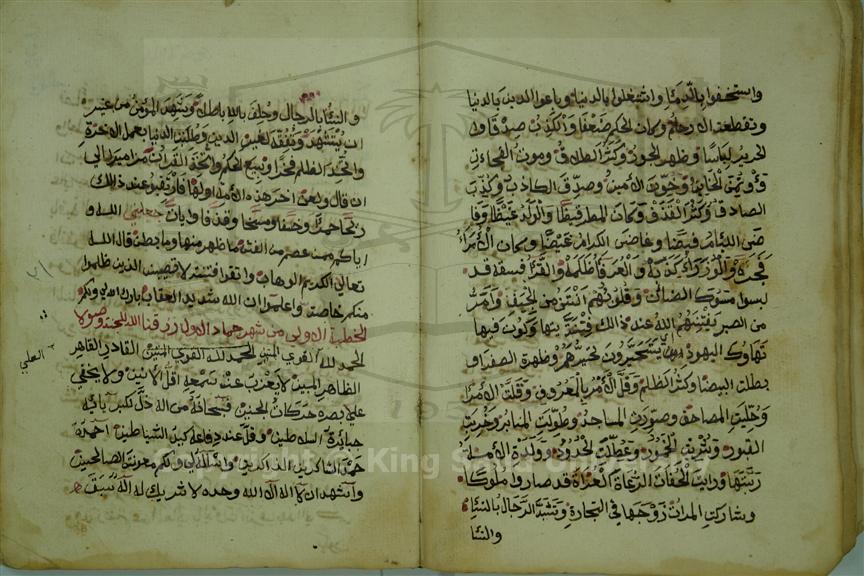 واستخفوا بالدما واشتغلوا بالدنيا وباعوا الدين بالدنيا
وتقطعت الارحام وكان الحكم ضعفا والكذب صدقا و
الحرير لباسا وظهر الجور وكثر الطلاق وموت الفجاءة
وأوتمن الخاين وخون الامين وصدق الكاذب وكذب
الصادق وكثر القذف وكان المطر قيظا والولد غيظا وفا
ضى اللئام فيضا وغاضى الكرام غيضا وكان الأمرا
فجره والوزرا كذبه والعرفا ظلمه والقرا فسقه قد
لبسوا مسوك الضان وقلوبهم انتن من الجيف وامر
من الصبر يغشهم الله عند ذالك فتنة يتهاوكون فيها
تهاوك اليهود وظهرة الصفرا و
بطلت البيضا وكثر الظلم وقل الأمر بالمعروف
وحليت المصاحف وصورت المساجد وطولت المنابر وخربت
القبور وشربت الخمور وعطلت الحدود وولدة الأمة
ربتها ورايت الحفات الرعاة العراة قد صاروا ملوكا
وشاركت المراة زوجها في التجارة وتشبه الرجال بالنسا
والنسا
والنسا بالرجال وحلف بالله باطلا ويشهد المؤمن من غير
ان يستشهد وتفقه لغير الدين وطلبت الدنيا بعمل الاخرة
واتخذ الظلم فخرا وبيع الحكم واتخذ القران مزامير الي
ان قال ولعن اخر هذه الأمة اولها فارتقبوا عند ذالك
ريحا حمرا وخسفا ومسخا وقذفا وايات جعلني الله و
اياكم ممن عصم من الفتن ما ظهر منها وما بطن قال الله
تعالى الكريم الوهاب واتقوا فتنة لا تصيبن الذين ظلموا
منكم خاصة واعلموا ان الله شديد العقاب بارك الله لي ولكم
الخطبة الاولى من شهر جماد الاول رزقنا الله الجنة
الحمد لله القوي المتين الحمد لله القوي المتين القادر القاهر
الظاهر المبين لا يعزب عند سمعه اقل الانين ولا يخفي
على بصره حركات الجنين فسبحانه من اله ذل لكبريايه
جبابرة السلاطين وقل عند دفاعه كيد الشياطين احمده
حمد الشاكرين الذاكرين واسأله لي ولكم معونة الصالحين
واشهد ان لا اله الا الله وحده لا شريك له اله